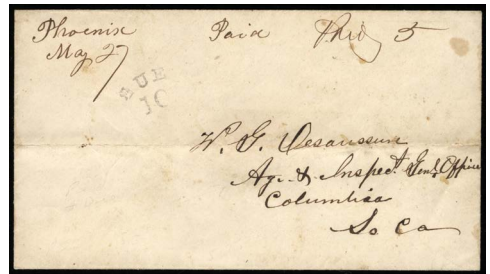 Phoenix Paid 5
May 27
SUE
10
W. G. Desaussure
Agt. & Inspect. Genl. Office
Columbia
So Ca